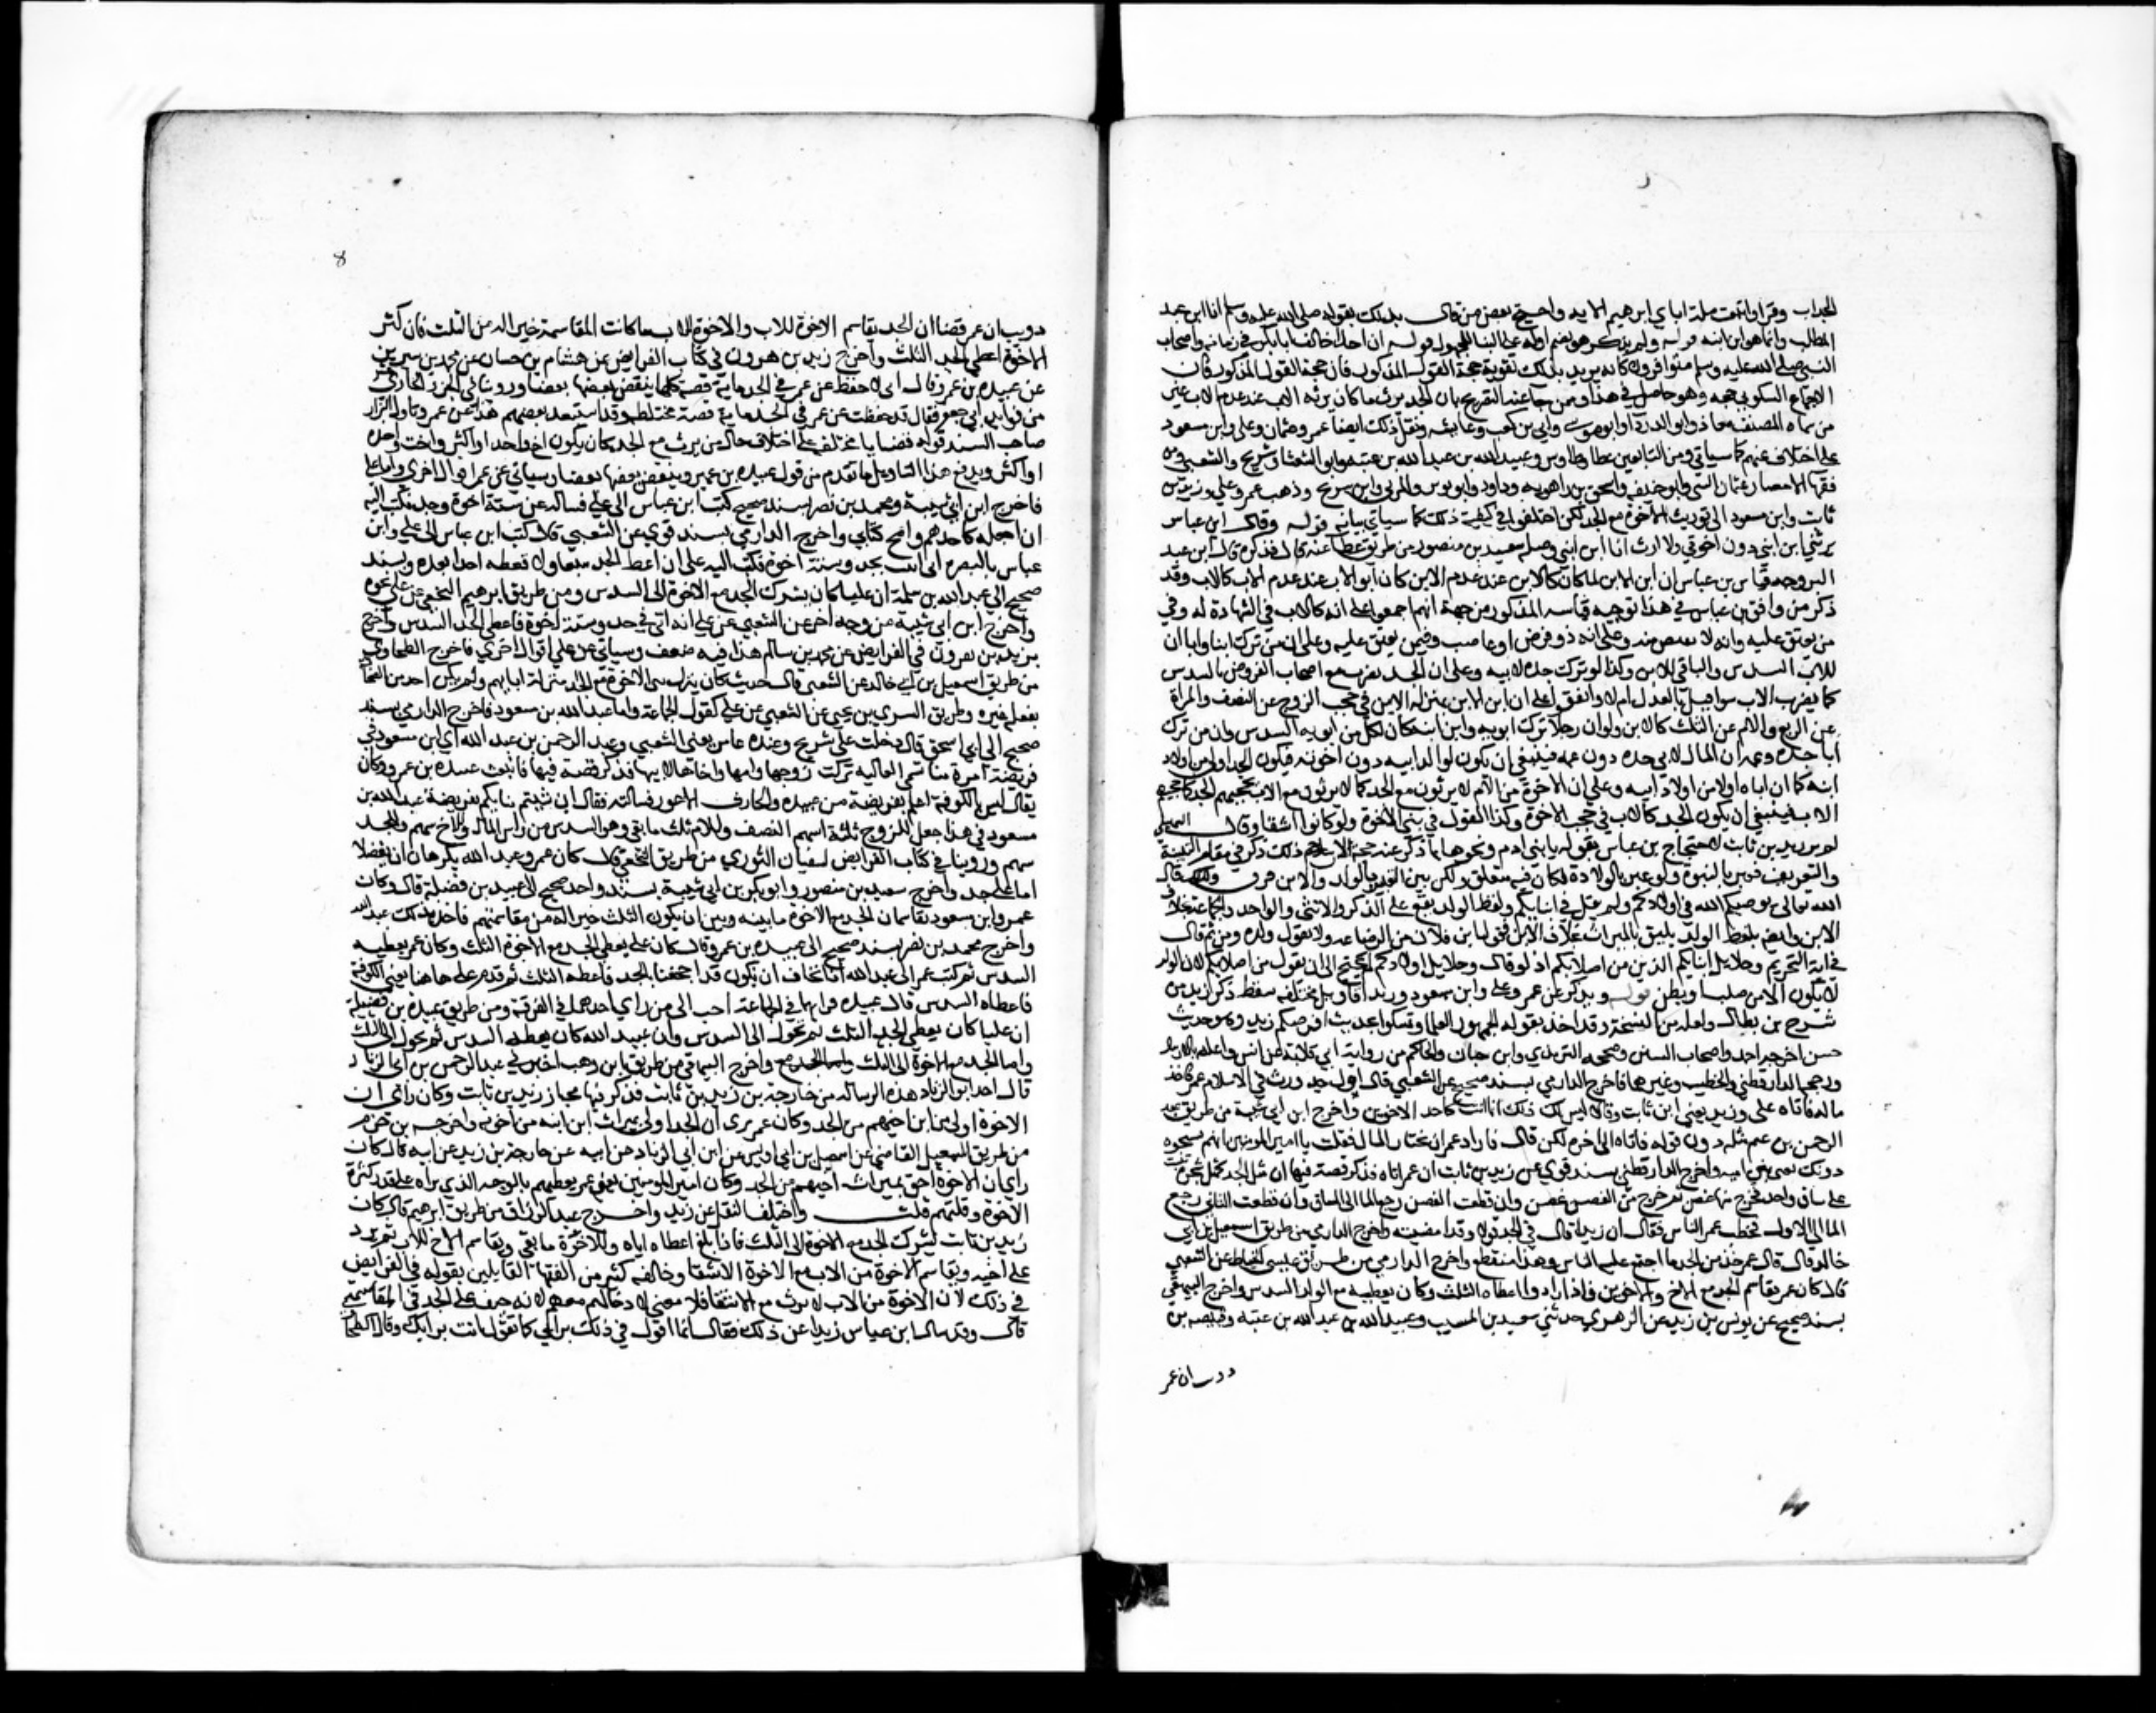 الجد اب وقرا واتبعت ملة اباي ابرهيم الايه واحتج بعض من قال بذلك بقوله صلى الله عليه وسلم انا ابن عبد
المطلب وانما هو ابن ابنه قوله ولم يذكر هو بضم اوله على البنا للمجهول قوله ان احدا خالف ابا بكر في زمانه واصحاب
النبي صلى الله عليه وسلم متوافرون كانه يريد بذلك تقوية حجة القول المذكور فان حجة القول المذكور فان
الاجماع السكوتي حجة وهو حاصل في هذا وممن جا عنه التصريح بان الجد يرث ما كان يرث الاب عند عدم الاب غير
من سماه المصنف معاذ وابو الدردا وابو موسى وابي بن كعب وعايشه ونقل ذلك ايضا عن عمر وعثمان وعلي وابن مسعود
على اختلاف عنهم كما سياتي ومن التابعين عطا وطاوس وعبيد الله بن عبد الله بن عتبه وابو الشعثا وشريح والشعبي ومن
فقها الامصار عثمان البتي وابو حنيفه واسحق بن راهويه وداود وابو ثور والمزني وابن سريج وذهب عمر وعلي وزيد بن
ثابت وابن مسعود الى توريث الاخوة مع الجد لكن اختلفوا في كيفية ذلك كما سياتي بيانه قوله وقال ابن عباس
يرثني ابن ابني دون اخوتي ولا ارث انا ابن ابني وصله سعيد بن منصور من طريق عطا عنه قال فذكره قال ابن عبد
البر وجه قياس بن عباس ان ابن الابن لما كان كالابن عند عدم الابن كان ابو الاب عند عدم الاب كالاب وقد
ذكر من وافق بن عباس في هذا توجيه قياسه المذكور من جهة انهم اجمعوا على انه كالاب في الشهادة له وفي
من يعتق عليه وانه لا يقتص منه وعلى انه ذو فرض او عاصب وعلى ان من ترك ابنا وابا ان
للاب السدس والباقي للابن وكذا لو ترك جده لابيه وعلى ان الجد يضرب مع اصحاب الفروض بالسدس
كما يضرب الاب سوا قيل بالعول ام لا واتفقوا على ان ابن الابن بمنزلة الابن في حجب الزوج عن النصف والمراة
عن الربع والام عن الثلث كالابن ولو ان رجلا ترك ابويه وابن ابنه كان لكل من ابويه السدس وان من ترك
ابا جده وعمه ان المال لابي جده دون عمه فينبغي ان يكون لوالد ابيه دون اخوته فيكون الجد اولى من اولاد
ابيه كما ان اباه اولى من اولاد ابيه وعلى ان الاخوة من الام لا يرثون مع الجد كما لا يرثون مع الاب فحجبهم الجد كما حجبهم
الاب فينبغي ان يكون الجد كالاب في حجب الاخوة وكذا القول في بني الاخوة ولو كانوا اشقا وقال السهيلي
لم ير زيد بن ثابت لاحتجاج بن عباس بقوله يا بني ادم ونحوها مما ذكر عنه حجة لان ذلك ذكر في مقام النسبة
والتعريف فعبر بالبنوة ولو عبر بالولادة لكان فيه متعلق ولكن بين التعبير بالولد والابن فرق ولذلك قال
الله تعالى يوصيكم الله في اولادكم ولم يقل في ابنايكم ولفظ الولد يقع على الذكر والانثى والواحد والجمع بخلاف
الابن وايضا فلفظ الولد يليق بالميراث بخلاف الابن تقول ابن فلان من الرضاعة ولا تقول ولده ومن ثم قال
في اية التحريم وحلايل ابنايكم الذين من اصلابكم اذ لو قال وحلايل اولادكم لم يحتج الى ان يقول من اصلابكم لان الولد
لا يكون الا من صلب او بطن قوله ويذكر عن عمر وعلي وابن مسعود وزيد اقاويل مختلفة سقط ذكر زيد من
شرح بن بطال ولعله من النسخة وقد اخذ بقوله الجمهور العلما وتمسكوا بحديث افرضكم زيد وهو حديث
حسن اخرجه احمد واصحاب السنن وصححه الترمذي وابن حبان والحاكم من رواية ابي قلابة عن انس واعله بالارسال
ورجحه الدارقطني والخطيب وغيرهما فاخرج الدارمي بسند صحيح عن الشعبي قال اول جد ورث في الاسلام عمر فاخذ
ماله فاتاه علي وزيد يعني ابن ثابت وقالا ليس لك ذلك انما انت كاحد الاخوين واخرج ابن ابي شيبة من طريق عبد
الرحمن بن غنم مثله دون قوله فاتاه الى اخره لكن قال فاراد عمر ان يحتاز المال فقلت يا امير المومنين انهم شجرة
دونك يعني بني ابيه واخرج الدارقطني بسند قوي عن زيد بن ثابت ان عمر اتاه فذكر قصة فيها ان مثل الجد كمثل شجرة نبتت
على ساق واحد فخرج منها غصن ثم خرج من الغصن غصن وان قطعت الغصن رجع الما الى الساق وان قطعت الثاني رجع
الما الى الاول فخطب عمر الناس فقال ان زيدا قال في الجد قولا وقد امضيته واخرج الدارمي من طريق اسمعيل بن ابي
خالد قال قال عمر خذ من الجد ما اجتمع عليه الناس وهذا منقطع واخرج الدارمي من طريق عيسى الخياط عن الشعبي
قال كان عمر يقاسم الجد مع الاخ والاخوين فاذا زادوا اعطاه الثلث وكان يعطيه مع الولد السدس واخرج البيهقي
بسند صحيح عن يونس بن زيد عن الزهري حدثني سعيد بن المسيب وعبيد الله بن عبد الله بن عتبه وقبيصه بن
دوب ان عمر
8
دويب ان عمر قضا ان الجد يقاسم الاخوة للاب والام والاخوة للاب ما كانت المقاسمة خير له من الثلث فان كثر
الاخوة اعطي الجد الثلث واخرج زيد بن هرون في كتاب الفرايض عن هشام بن حسان عن محمد بن سيرين
عن عبيده بن عمر وقال اني لاحفظ عن عمر في الجد ماية قصة كلها ينقض بعضها بعضا وروينا في الجز الحادي عشر
من فوايد ابي جعفر فقال قد حفظت عن عمر في الجد ماية قصة مختلفة وقد استبعد بعضهم هذا عن عمر وتاول البزار
صاحب السند قوله قضايا مختلفة على اختلاف حال من يرث مع الجد كان يكون اخ واحد او اكثر واخت واحدة
او اكثر ويدفع هذا التاويل ما تقدم من قول عبيده بن عمر وينقض بعضها بعضا وسياتي عن عمر اقوال اخرى واما علي
فاخرج ابن ابي شيبة ومحمد بن نصر بسند صحيح كتب ابن عباس الى علي فساله عن ستة اخوة وجد فكتب اليه
ان اجعله كاحدهم وامح كتابي واخرج الدارمي بسند قوي عن الشعبي قال كتب ابن عباس الى علي وابن
عباس بالبصره اني اتيت بجد وستة اخوة فكتب اليه علي ان اعط الجد سبعا ولا تعطه احدا بعده وبسند
صحيح الى عبد الله بن سلمة ان عليا كان يشرك الجد مع الاخوة الى السدس ومن طريق ابرهيم النخعي عن علي نحوه
واخرج ابن ابي شيبة من وجه اخر عن الشعبي عن علي انه اتي في جد وستة اخوة فاعطى الجد السدس واخرج
يزيد بن هرون في الفرايض عن محمد بن سالم هذا فيه ضعف وسياتي عن علي اقوال اخرى فاخرج الطحاوي
من طريق اسمعيل بن ابي خالد عن الشعبي قال حدثت كان ينزل بني الاخوة مع الجد منزلة ابايهم ولم يكن احد من الصحابة
يفعله غيره وطريق السري بن يحيى عن الشعبي عن علي كقول الجماعة واما عبد الله بن مسعود فاخرج الدارمي بسند
صحيح الى ابي اسحق قال دخلت على شريح وعنده عامر يعني الشعبي وعبد الرحمن بن عبد الله اي ابن مسعود في
فريضة امرة منا تسمى العاليه تركت زوجها وامها واخاها لابيها وجدها فذكر قصة فيها فاتيت عبيده بن عمرو وكان
يقال ليس بالكوفة اعلم بفريضة من عبيده والحارث الاعور فسالته فقال ان شيتم نباتكم بفريضة عبد الله بن
مسعود في هذا فجعل للزوج ثلثة اسهم النصف وللام ثلث ما بقي وهو السدس من راس المال وللاخ سهم وللجد
سهم وروينا في كتاب الفرايض لسفيان الثوري من طريق النخعي قال كان عمر وعبد الله يكرهان ان يفضلا
اما على جد واخرج سعيد بن منصور وابو بكر بن ابي شيبة بسند واحد صحيح الى عبيد بن نضلة قال كان
عمر وابن مسعود يقاسمان الجد مع الاخوة ما بينه وبين ان يكون الثلث خيرا له من مقاسمتهم فاخذ بذلك عبد الله
واخرج محمد بن نصر بسند صحيح الى عبيده بن عمرو قال كان علي يعطي الجد مع الاخوة الثلث وكان عمر يعطيه
السدس ثم كتب عمر الى عبد الله انا نخاف ان نكون قد اجحفنا بالجد فاعطه الثلث ثم قدم علي هاهنا يعني الكوفة
فاعطاه السدس قال عبيده فرايهما في الجماعة احب الي من راي احدهما في الفرقة ومن طريق عبيده بن نضيلة
ان عليا كان يعطي الجد الثلث ثم تحول الى السدس وان عبد الله كان يعطيه السدس ثم تحول الى الثلث
واما الجد مع الاخوة الى الثلث واخرج البيهقي من طريق ابن وهب اخبرني عبد الرحمن بن ابي الزناد
قال اخذ ابو الزناد هذه الرسالة من خارجة بن زيد بن ثابت فذكر فيها وكان راي ان
الاخوة اولى بميراث اخيهم من الجد وكان عمر يرى ان الجد اولى بميراث ابن ابنه من اخوته واخرجه بن حزم
من طريق اسمعيل القاضي عن اسمعيل بن ابي اويس عن ابن ابي الزناد عن ابيه عن خارجة بن زيد عن ابيه قال كان
راي ان الاخوة احق بميراث اخيهم من الجد وكان امير المومنين يعني عمر يعطيهم بالوجه الذي يراه على قدر كثرة
الاخوة وقلتهم قلت واختلف النقل عن زيد واخرج عبد الرزاق من طريق ابرهيم قال كان
زيد بن ثابت يشرك الجد مع الاخوة الى الثلث فاذا بلغ الثلث اعطاه اياه وللاخوة ما بقي ويقاسم الاخ للاب ثم يرد
على اخيه ويقاسم الاخوة من الاب مع الاخوة الاشقا وخالفه كثير من الفقها القايلين بقوله في الفرايض
في ذلك لان الاخوة من الاب لا يرث مع الاشقا فلا معنى لادخالهم معهم لانه حيف على الجد في المقاسمة
قال وقد سال ابن عباس زيدا عن ذلك فقال انما اقول في ذلك برايي كما تقول انت برايك وقال الطحا